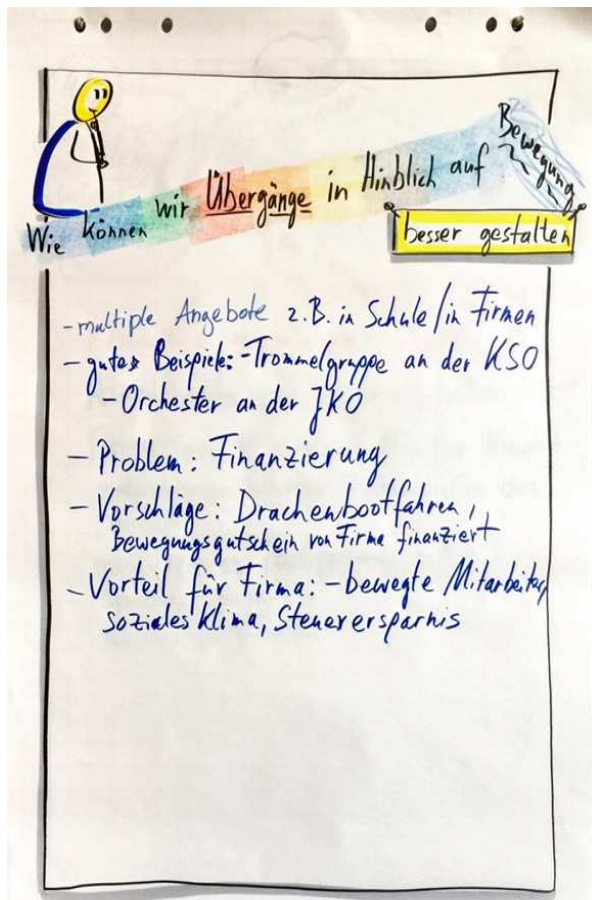 Wie können wir Übergänge in Hinblick auf Bewegung
besser gestalten
- multiple Angebote z.B. in Schule/in Firmen
- gutes Beispiele: - Trommelgruppe an der KSO
- Orchester an der JKO
- Problem: Finanzierung
- Vorschläge: Drachenbootfahren,
Bewegungsgutschein von Firma finanziert
- Vorteil für Firma: - bewegte Mitarbeiter,
soziales Klima, Steuerersparnis